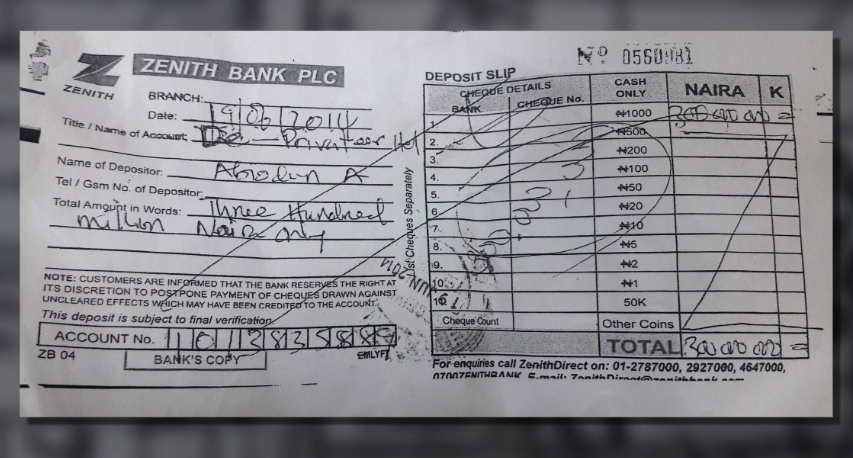 Nº 0560981
Z ZENITH BANK PLC
ZENITH
BRANCH:
Date: 19/06/2014
Title / Name of Account: - Privateer Hol
Name of Depositor: Abiodun A
Tel / Gsm No. of Depositor:
Total Amount in Words: Three Hundred
million Naira only
NOTE: CUSTOMERS ARE INFORMED THAT THE BANK RESERVES THE RIGHT AT
ITS DISCRETION TO POSTPONE PAYMENT OF CHEQUES DRAWN AGAINST
UNCLEARED EFFECTS WHICH MAY HAVE BEEN CREDITED TO THE ACCOUNT.
This deposit is subject to final verification.
ACCOUNT No. 1011383588
ZB 04
BANK'S COPY
EMLYFT
List Cheques Separately
DEPOSIT SLIP
CHEQUE DETAILS
BANK CHEQUE No.
CASH ONLY
NAIRA K
1. ₦1000 300,000,000 =
2. ₦500
3. ₦200
4. ₦100
5. ₦50
6. ₦20
7. ₦10
8. ₦5
9. ₦2
10. ₦1
50K
Cheque Count Other Coins
TOTAL 300,000,000 =
JUN 2014
For enquiries call ZenithDirect on: 01-2787000, 2927000, 4647000,
0700ZENITHBANK, E-mail: ZenithDirect@zenithbank.com